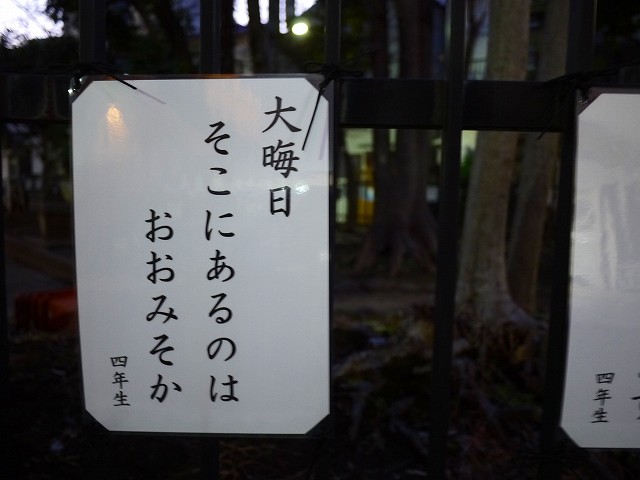 大晦日
そこにあるのは
おおみそか
四年生
四年生